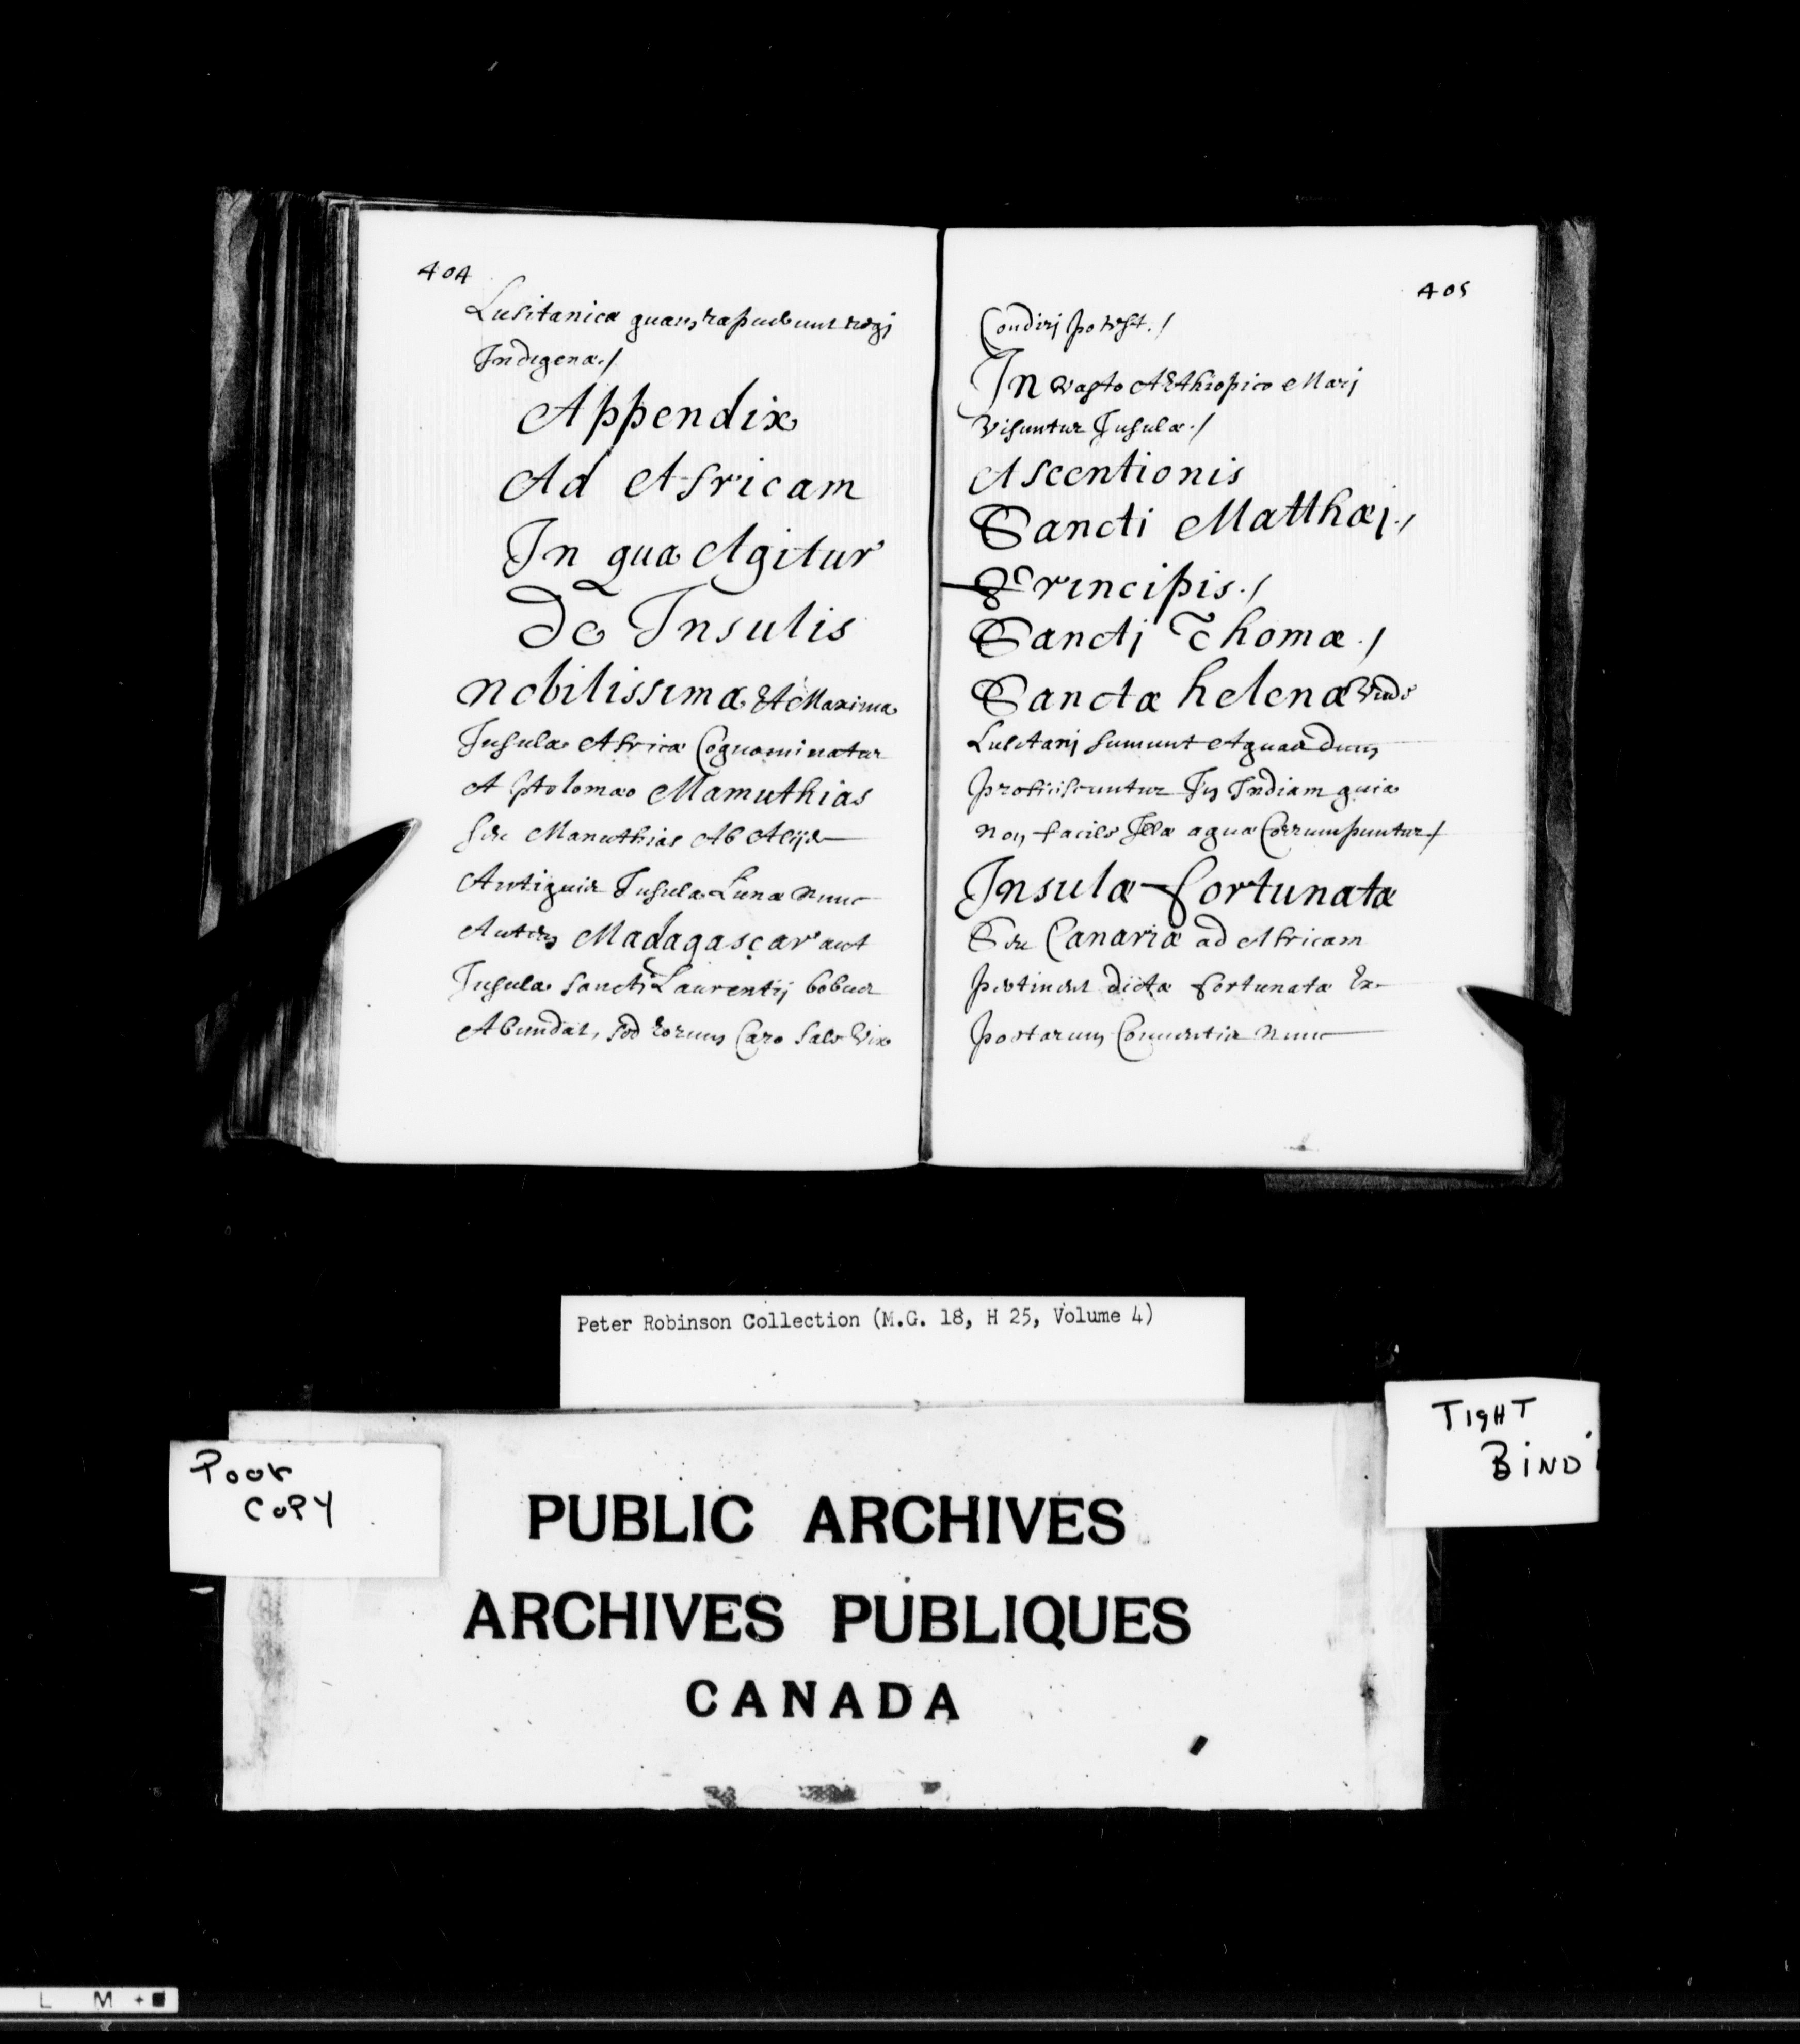 404
Lusitanicæ quam rapuerunt regj
Indigenæ./
Appendix
Ad Africam
In qua Agitur
De Insulis
nobilissima Et Maxima
Insula Africæ Cognominatur
A ptolomæo Mamuthias
seu Manuthias Ab Alijs
Antiquis Insula Lunæ nunc
Autem Madagascar aut
Insula sancti Laurentij bobus
Abundat, sed eorum Caro sale Vix
405
Condiri potest./
In vasto AEthiopico Marj
Visuntur Insulæ./
Ascentionis
Sancti Matthæj./
Principis./
Sanctj Thomæ./
Sanctæ helenæ Unde
Lusitanj sumunt Aquas dum
proficiscuntur In Indiam quia
non facile Illæ aquæ Corrumpuntur./
Insulæ fortunatæ
Seu Canariæ ad Africam
pertinent dictæ fortunatæ Ex
poetarum Commentis nunc
Peter Robinson Collection (M.G. 18, H 25, Volume 4)
Poor
Copy
TIGHT
BIND
PUBLIC ARCHIVES
ARCHIVES PUBLIQUES
CANADA
L M